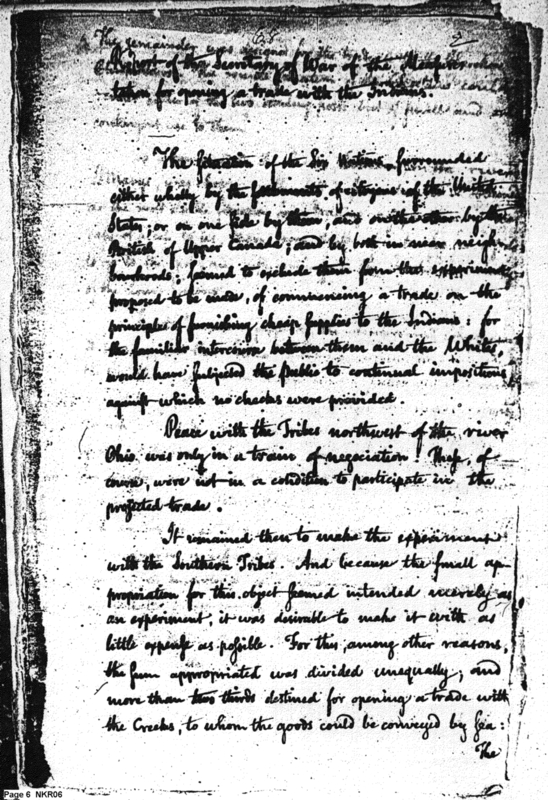 68
2
Report of the Secretary of War of the Measures taken
tation for opening a trade with the Indians.
The situation of the Six Nations, surrounded
either wholly by the settlements of citizens of the United
States; or on one side by them, and on the other by the
British of Upper Canada; and by both in near neigh-
bourhoods; seemed to exclude them from the experiment
proposed to be made, of commencing a trade on the
principles of furnishing cheap supplies to the Indians: for
the familiar intercourse between them and the Whites,
would have subjected the public to continual impositions
against which no checks were provided.
Peace with the Tribes northwest of the river
Ohio was only in a train of negociation. These, of
course, were not in a condition to participate in the
projected trade.
It remained then to make the experiment
with the Southern Tribes. And because the small ap-
propriation for this object seemed intended merely as
an experiment, it was desirable to make it with as
little expense as possible. For this, among other reasons,
the sum appropriated was divided unequally; and
more than two thirds destined for opening a trade with
the Creeks, to whom the goods could be conveyed by sea:
The
Page 6 NKR06